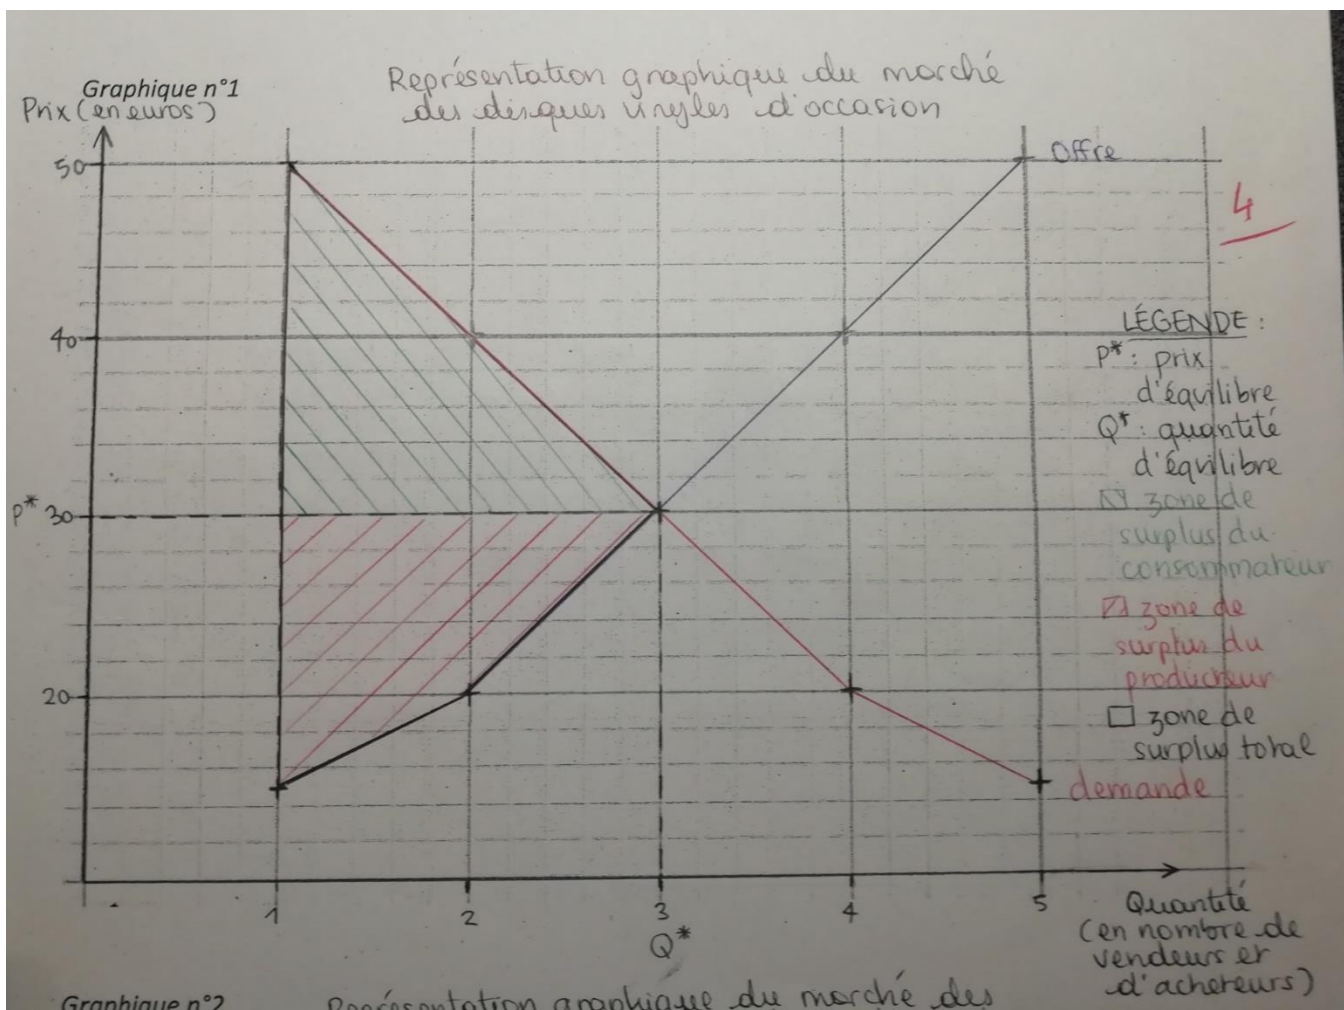 Graphique n°1
Représentation graphique du marché
des disques vinyles d'occasion
Prix (en euros)
50
Offre
4
40
LÉGENDE :
P* : prix
d'équilibre
Q* : quantité
d'équilibre
zone de
surplus du
consommateur
zone de
surplus du
producteur
zone de
surplus total
P* 30
20
demande
1
2
3
4
5
Q*
Quantité
(en nombre de
vendeurs et
d'acheteurs)
Graphique n°2
Représentation graphique du marché des